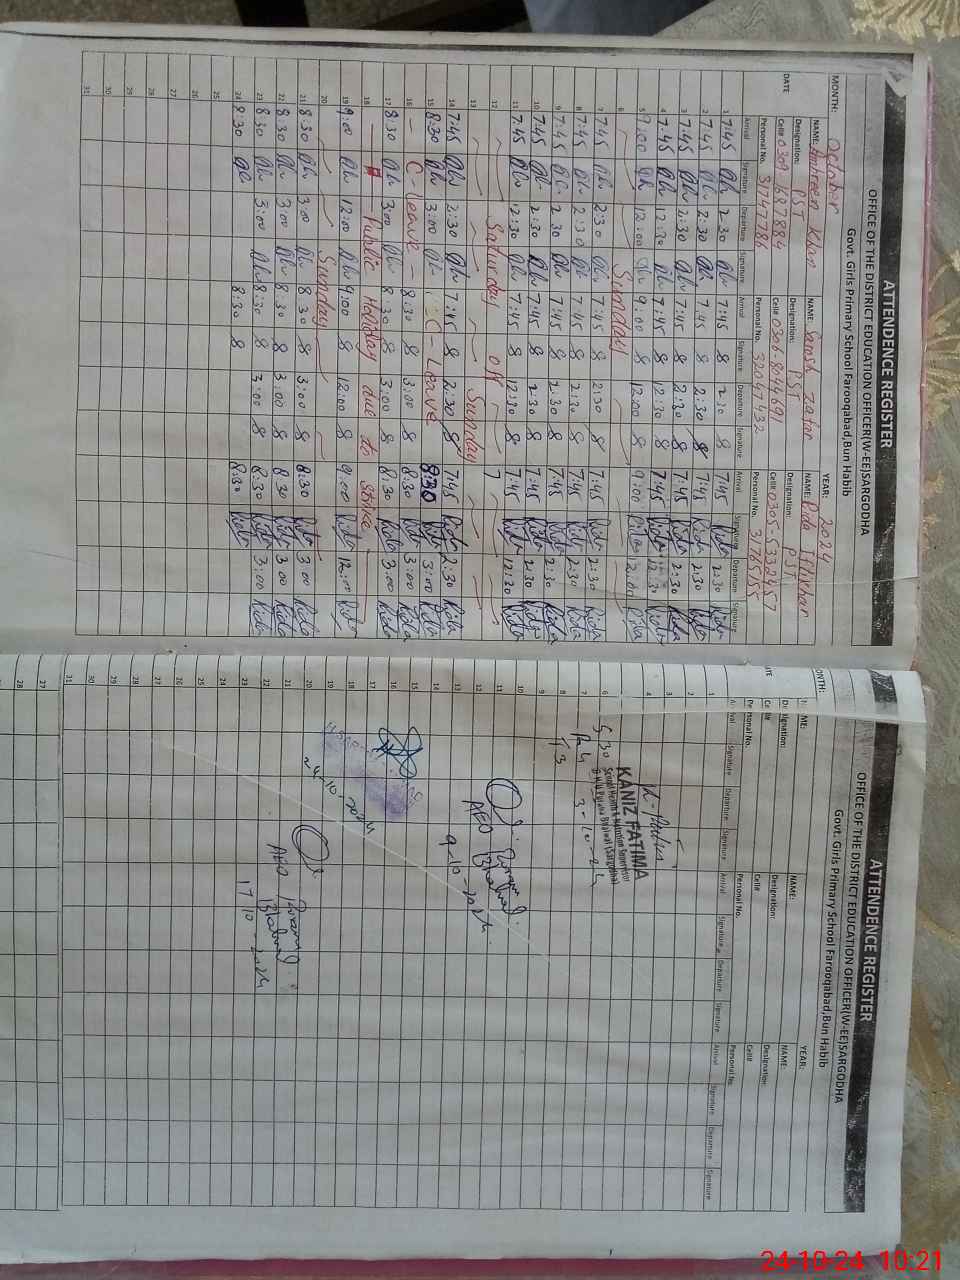 ATTENDENCE REGISTER
OFFICE OF THE DISTRICT EDUCATION OFFICER(W-EE)SARGODHA
Govt. Girls Primary School Farooqabad,Bun Habib
MONTH: October YEAR: 2024
NAME: Ambreen Khan NAME: Zafar NAME: Rida Iftikhar
DATE Designation: PST Designation: PST Designation: PST
Cell# 0309 Cell# 0306-8044691 Cell# 0305-5332457
Personal No. 31747786 Personal No. 32047432 Personal No.
Arrival Signature Departure Signature Arrival Signature Departure Signature Arrival Signature Departure Signature
1 7:45 2:30 7:45 2:30 7:45 Rida 2:30 Rida
2 7:45 2:30 7:45 2:30 7:45 Rida 2:30 Rida
3 7:45 2:30 7:45 2:30 7:45 Rida 2:30 Rida
4 7:45 12:30 7:45 12:30 7:45 Rida 12:30 Rida
5 9:00 12:00 9:00 12:00 9:00 Rida 12:00 Rida
6 Sunday
7 7:45 2:30 7:45 2:30 7:45 Rida 2:30 Rida
8 7:45 2:30 7:45 2:30 7:45 Rida 2:30 Rida
9 7:45 2:30 7:45 2:30 7:45 Rida 2:30 Rida
10 7:45 2:30 7:45 2:30 7:45 Rida 2:30 Rida
11 7:45 12:30 7:45 12:30 7:45 Rida 12:30 Rida
12 Saturday off
13 Sunday
14 7:45 2:30 7:45 2:30 7:45 Rida 2:30 Rida
15 8:30 3:00 C-Leave 8:30 Rida 3:00 Rida
16 C-leave 8:30 3:00 8:30 Rida 3:00 Rida
17 8:30 3:00 8:30 3:00 8:30 Rida 3:00 Rida
18 Public Holiday due to strike
19 9:00 12:00 9:00 12:00 9:00 Rida 12:00 Rida
20 Sunday
21 8:30 3:00 8:30 3:00 8:30 Rida 3:00 Rida
22 8:30 3:00 8:30 3:00 8:30 Rida 3:00 Rida
23 8:30 3:00 8:30 3:00 8:30 Rida 3:00 Rida
24 8:30 8:30 8:30 Rida
25
26
27
28
29
30
31
ATTENDENCE REGISTER
OFFICE OF THE DISTRICT EDUCATION OFFICER(W-EE)SARGODHA
Govt. Girls Primary School Farooqabad,Bun Habib
MONTH: YEAR:
NAME: NAME: NAME:
Designation: Designation: Designation:
Cell# Cell# Cell#
Personal No. Personal No. Personal No.
Arrival Signature Departure Signature Arrival Signature Departure Signature Arrival Signature Departure Signature
1
2
3
4
KANIZ FATIMA
5
6
3-10-24
7
8
9
10
11
AEO
12
13
9-10-2024
14
15
16
17
18
24-10-2024
19
20
21
AEO
22
23
17-10-2024
24
25
26
27
28
29
30
31
27
28
24-10-24 10:21